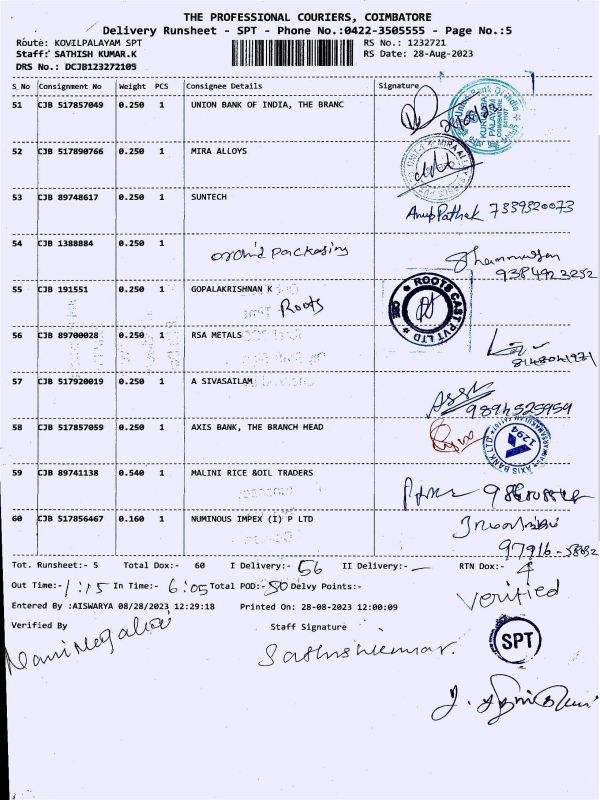 THE PROFESSIONAL COURIERS, COIMBATORE
Delivery Runsheet - SPT - Phone No.:0422-3505555 - Page No.:5
Route: KOVILPALAYAM SPT RS No.: 1232721
Staff: SATHISH KUMAR.K RS Date: 28-Aug-2023
DRS No.: DCJB123272105
S_No Consignment No Weight PCS Consignee Details Signature
51 CJB 517857049 0.250 1 UNION BANK OF INDIA, THE BRANC
52 CJB 517890766 0.250 1 MIRA ALLOYS
53 CJB 89748617 0.250 1 SUNTECH
Anup Pathak 7339320073
54 CJB 1388884 0.250 1
orchid packaging
9384923252
55 CJB 191551 0.250 1 GOPALAKRISHNAN K
Roots
ROOTS CAST PVT LTD
CBE
56 CJB 89700028 0.250 1 RSA METALS
57 CJB 517920019 0.250 1 A SIVASAILAM
9894525959
58 CJB 517857059 0.250 1 AXIS BANK, THE BRANCH HEAD
AXIS BANK LTD
1294
59 CJB 89741138 0.540 1 MALINI RICE &OIL TRADERS
60 CJB 517856467 0.160 1 NUMINOUS IMPEX (I) P LTD
97916-58682
Tot. Runsheet:- 5 Total Dox:- 60 I Delivery:- 56 II Delivery:- — RTN Dox:- 4
Out Time:- 1:15 In Time:- 6:05 Total POD:- 50 Delvy Points:-
verified
Entered By :AISWARYA 08/28/2023 12:29:18 Printed On: 28-08-2023 12:00:09
Verified By Staff Signature
SPT
Sathishkumar.